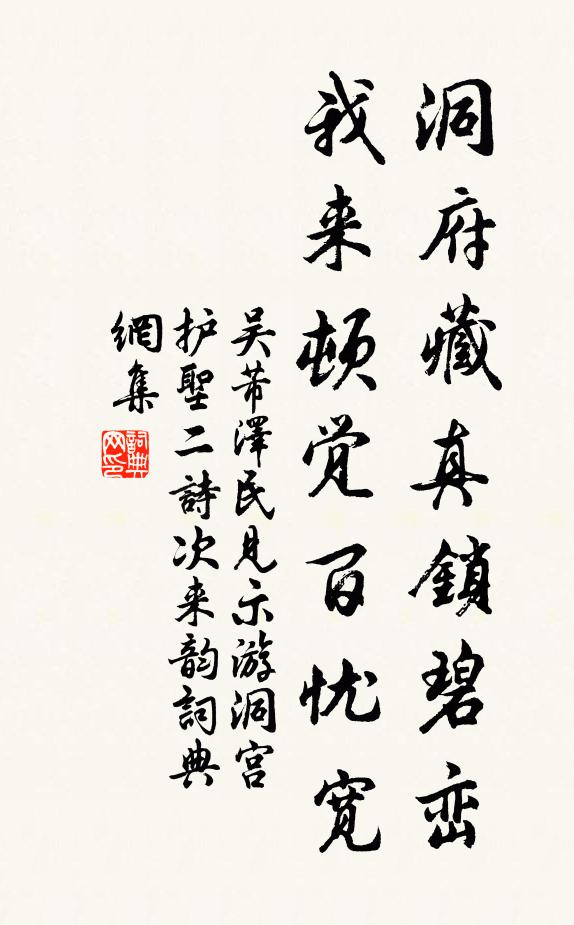 洞府藏真鎖碧峦
我来顿觉百忧宽
吴芾澤民见示游洞宫
护聖二詩次来韵詞典
網集
詞典网印